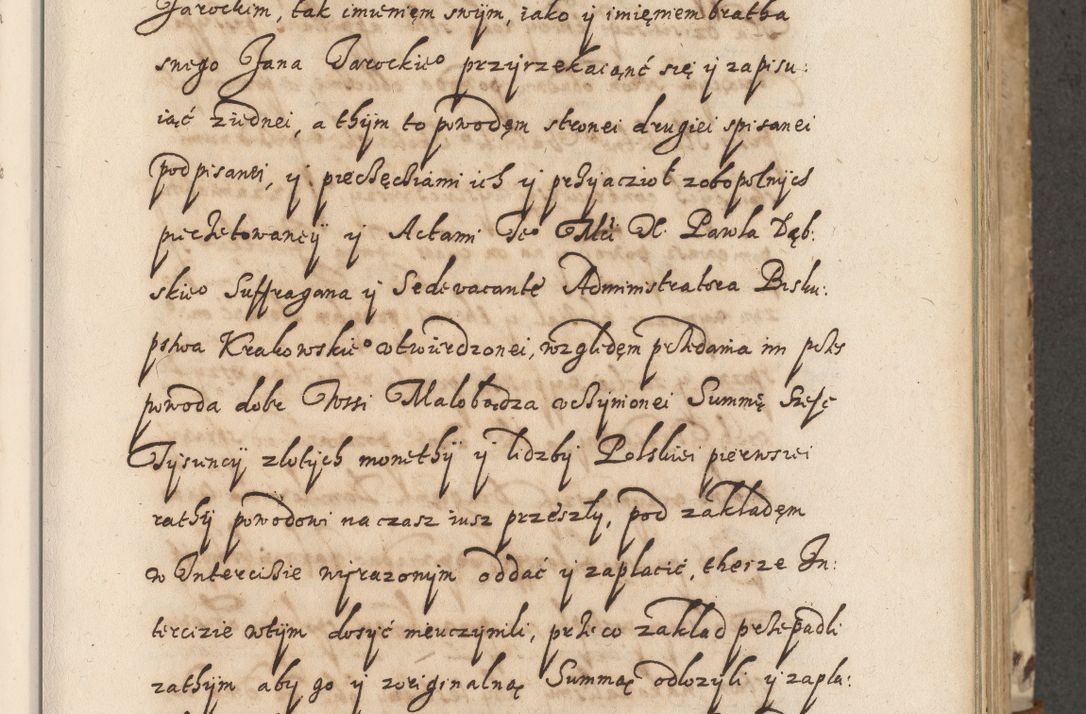 Jarockim, tak imieniem swÿm, iako ÿ imięniem bratha
snego Jana Jarockieo przÿrzekaiąnć się ÿ zapisu:
iąć ziednei, a thÿm to powodęm stronei drugiei spisanei
podpisanei, ÿ pieczęchiami ich ÿ przÿiaczioł zobopolnÿch
pieczetowanęÿ ÿ Actami Jeo Mći X. Pawła Dąb:
skieo Suffragana ÿ Sedevacante Administratora Bisku:
pstwa Krakowskieo otwierdzonei, względęm przedania im przes
powoda dobr Wssi Małobądza uczÿnionei Summę Szesc
Tÿsięncÿ złotÿch monethÿ ÿ lidzbÿ Polskiei pierwszei
rathÿ powodowi na czasz iusz przeszłÿ, pod zakładęm
w Intercizie wÿrazonÿm oddać ÿ zaplacić, therze In:
tercizie wtÿm dosÿć nieuczÿnili, przeco zakład przepadli
zathÿm abÿ go ÿ zoriginalnąę Summąę odłozÿli ÿ zapla: